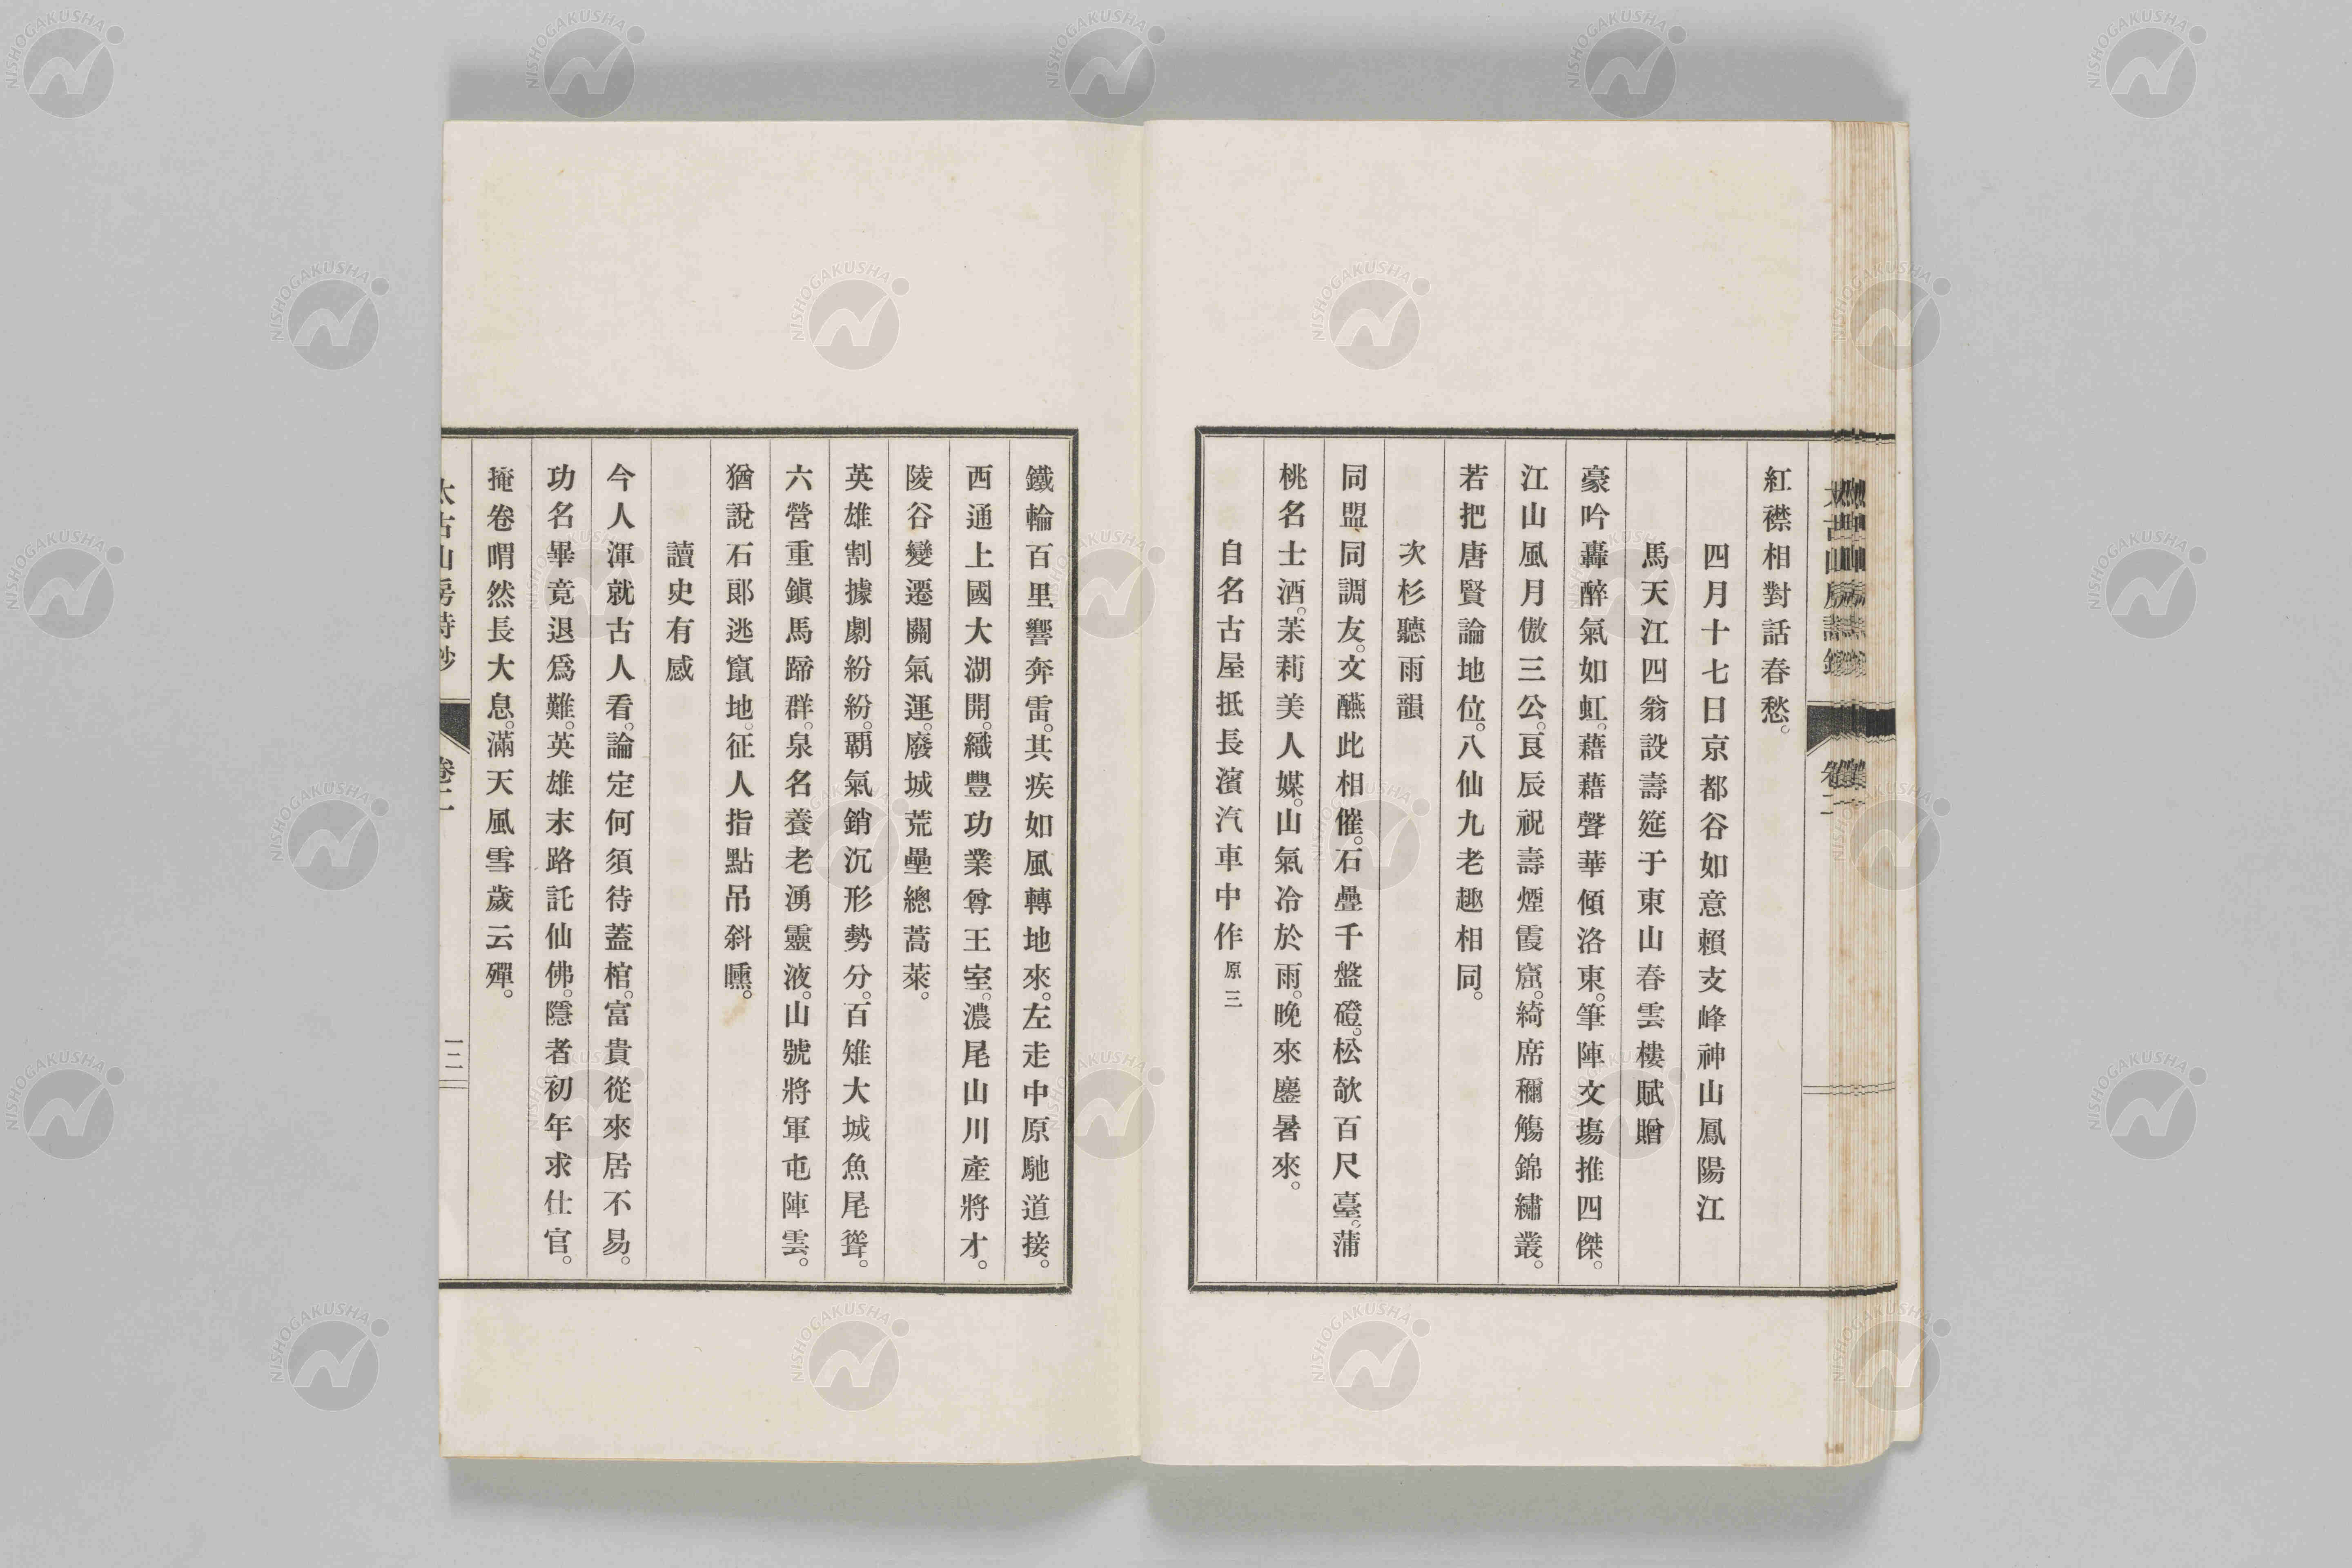 紅襟相對話春愁。
四月十七日京都谷如意賴支峰神山鳳陽江
馬天江四翁設壽筵于東山春雲樓賦贈
豪吟轟醉氣如虹。藉藉聲華傾洛東。筆陣文塲推四傑。
江山風月傲三公。良辰祝壽煙霞窟。綺席稱觴錦繡叢。
若把唐賢論地位。八仙九老趣相同。
次杉聽雨韻
同盟同調友。文醼此相催。石壘千盤磴。松欹百尺臺。蒲
桃名士酒。茉莉美人媒。山氣冷於雨。晚來鏖暑來。
自名古屋抵長濱汽車中作 原三
鐵輪百里響奔雷。其疾如風轉地來。左走中原馳道接。
西通上國大湖開。織豐功業尊王室。濃尾山川產將才。
陵谷變遷關氣運。廢城荒壘總蒿萊。
英雄割據劇紛紛。覇氣銷沉形勢分。百雉大城魚尾聳。
六營重鎭馬蹄群。泉名養老湧靈液。山號將軍屯陣雲。
猶說石郞逃竄地。征人指點吊斜曛。
讀史有感
今人渾就古人看。論定何須待蓋棺。富貴從來居不易。
功名畢竟退爲難。英雄末路託仙佛。隱者初年求仕官。
掩卷喟然長大息。滿天風雪歲云殫。
太古山房詩鈔
卷二
一二
NISHOGAKUSHA